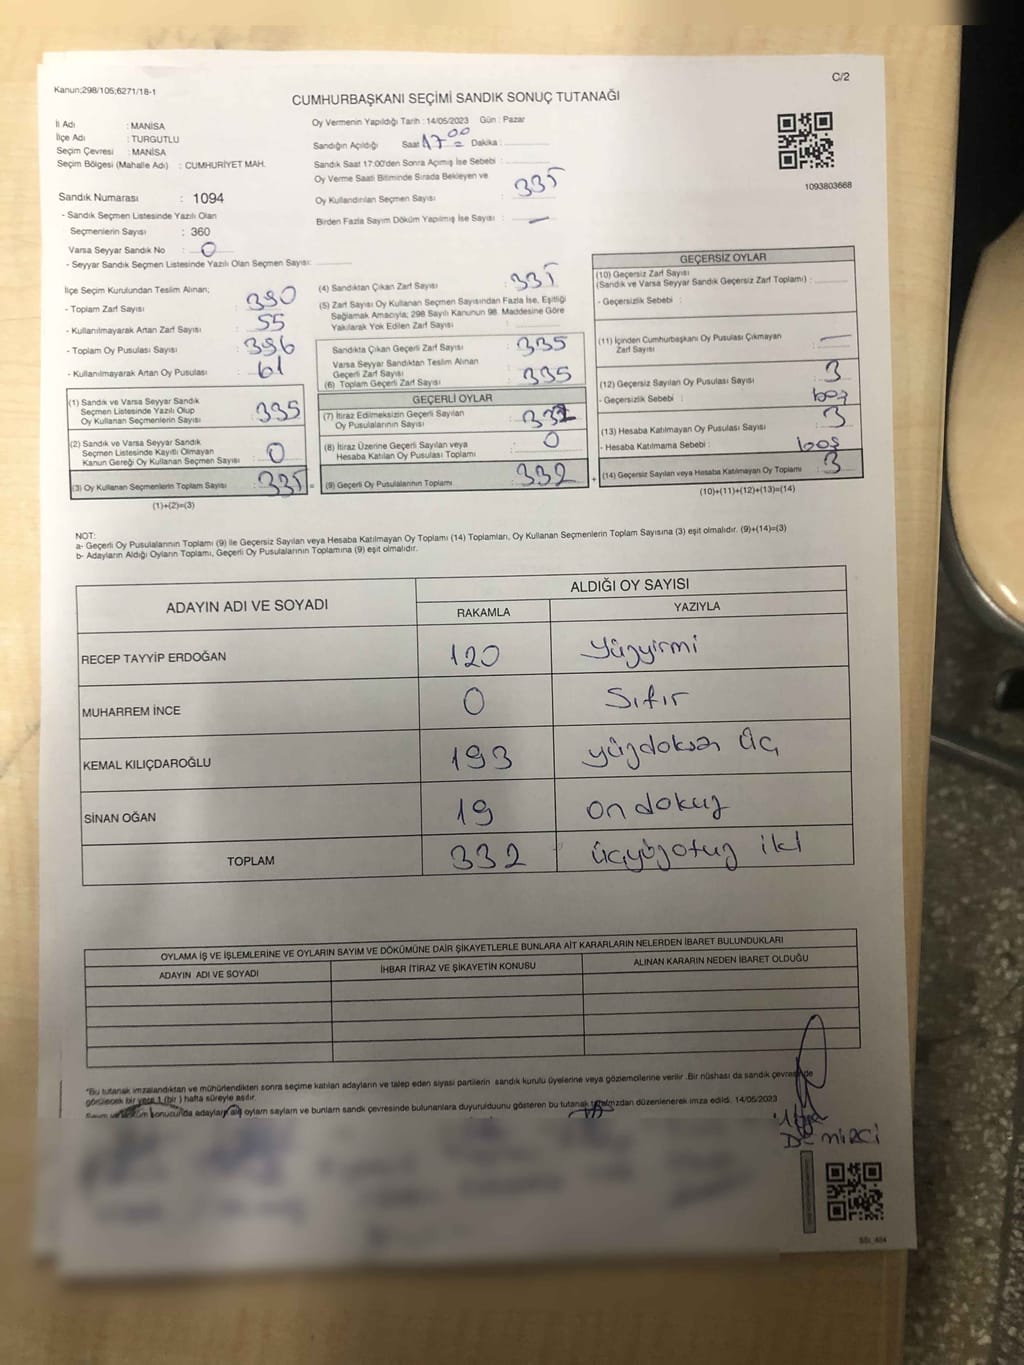 Kanun;298/105;6271/18-1
C/2
CUMHURBAŞKANI SEÇİMİ SANDIK SONUÇ TUTANAĞI
İl Adı : MANİSA
İlçe Adı : TURGUTLU
Seçim Çevresi : MANİSA
Seçim Bölgesi (Mahalle Adı) : CUMHURİYET MAH.
Sandık Numarası : 1094
- Sandık Seçmen Listesinde Yazılı Olan
Seçmenlerin Sayısı : 360
Varsa Seyyar Sandık No : 0
- Seyyar Sandık Seçmen Listesinde Yazılı Olan Seçmen Sayısı:
Oy Vermenin Yapıldığı Tarih : 14/05/2023 Gün : Pazar
Sandığın Açıldığı Saat 17 00 Dakika :
Sandık Saat 17:00'den Sonra Açımış İse Sebebi :
Oy Verme Saati Bitiminde Sırada Bekleyen ve
Oy Kullandırılan Seçmen Sayısı : 335
Birden Fazla Sayım Döküm Yapılmış İse Sayısı : —
1093803668
İlçe Seçim Kurulundan Teslim Alınan;
- Toplam Zarf Sayısı : 390
- Kullanılmayarak Artan Zarf Sayısı : 55
- Toplam Oy Pusulası Sayısı : 396
- Kullanılmayarak Artan Oy Pusulası : 61
(1) Sandık ve Varsa Seyyar Sandık
Seçmen Listesinde Yazılı Olup
Oy Kullanan Seçmenlerin Sayısı : 335
(2) Sandık ve Varsa Seyyar Sandık
Seçmen Listesinde Kayıtlı Olmayan
Kanun Gereği Oy Kullanan Seçmen Sayısı : 0
(3) Oy Kullanan Seçmenlerin Toplam Sayısı : 335 =
(1)+(2)=(3)
(4) Sandıktan Çıkan Zarf Sayısı : 335
(5) Zarf Sayısı Oy Kullanan Seçmen Sayısından Fazla İse, Eşitliği
Sağlamak Amacıyla; 298 Sayılı Kanunun 98. Maddesine Göre
Yakılarak Yok Edilen Zarf Sayısı :
Sandıkta Çıkan Geçerli Zarf Sayısı : 335
Varsa Seyyar Sandıktan Teslim Alınan
Geçerli Zarf Sayısı :
(6) Toplam Geçerli Zarf Sayısı : 335
GEÇERLİ OYLAR
(7) İtiraz Edilmeksizin Geçerli Sayılan
Oy Pusulalarının Sayısı : 332
(8) İtiraz Üzerine Geçerli Sayılan veya
Hesaba Katılan Oy Pusulası Toplamı : 0
(9) Geçerli Oy Pusulalarının Toplamı : 332 +
GEÇERSİZ OYLAR
(10) Geçersiz Zarf Sayısı
(Sandık ve Varsa Seyyar Sandık Geçersiz Zarf Toplamı) :
- Geçersizlik Sebebi :
(11) İçinden Cumhurbaşkanı Oy Pusulası Çıkmayan
Zarf Sayısı : —
(12) Geçersiz Sayılan Oy Pusulası Sayısı : 3
- Geçersizlik Sebebi : boş
(13) Hesaba Katılmayan Oy Pusulası Sayısı : 3
- Hesaba Katılmama Sebebi : boş
(14) Geçersiz Sayılan veya Hesaba Katılmayan Oy Toplamı : 3
(10)+(11)+(12)+(13)=(14)
NOT:
a- Geçerli Oy Pusulalarının Toplamı (9) ile Geçersiz Sayılan veya Hesaba Katılmayan Oy Toplamı (14) Toplamları, Oy Kullanan Seçmenlerin Toplam Sayısına (3) eşit olmalıdır. (9)+(14)=(3)
b- Adayların Aldığı Oyların Toplamı, Geçerli Oy Pusulalarının Toplamına (9) eşit olmalıdır.
ADAYIN ADI VE SOYADI
ALDIĞI OY SAYISI
RAKAMLA YAZIYLA
RECEP TAYYİP ERDOĞAN 120 Yüzyirmi
MUHARREM İNCE 0 Sıfır
KEMAL KILIÇDAROĞLU 193 yüzdoksan Üç
SİNAN OĞAN 19 on dokuz
TOPLAM 332 üçyüzotuz iki
OYLAMA İŞ VE İŞLEMLERİNE VE OYLARIN SAYIM VE DÖKÜMÜNE DAİR ŞİKAYETLERLE BUNLARA AİT KARARLARIN NELERDEN İBARET BULUNDUKLARI
ADAYIN ADI VE SOYADI İHBAR İTİRAZ VE ŞİKAYETİN KONUSU ALINAN KARARIN NEDEN İBARET OLDUĞU
*Bu tutanak imzalandıktan ve mühürlendikten sonra seçime katılan adayların ve talep eden siyasi partilerin sandık kurulu üyelerine veya gözlemcilerine verilir .Bir nüshası da sandık çevresinde
görülecek bir yere 1 (bir ) hafta süreyle asılır.
Sayım ve döküm sonucunda adayların oyların sayıları ve bunların sandık çevresinde bulunanlara duyurulduğunu gösteren bu tutanak düzenlenerek imza edildi. 14/05/2023
Demirci